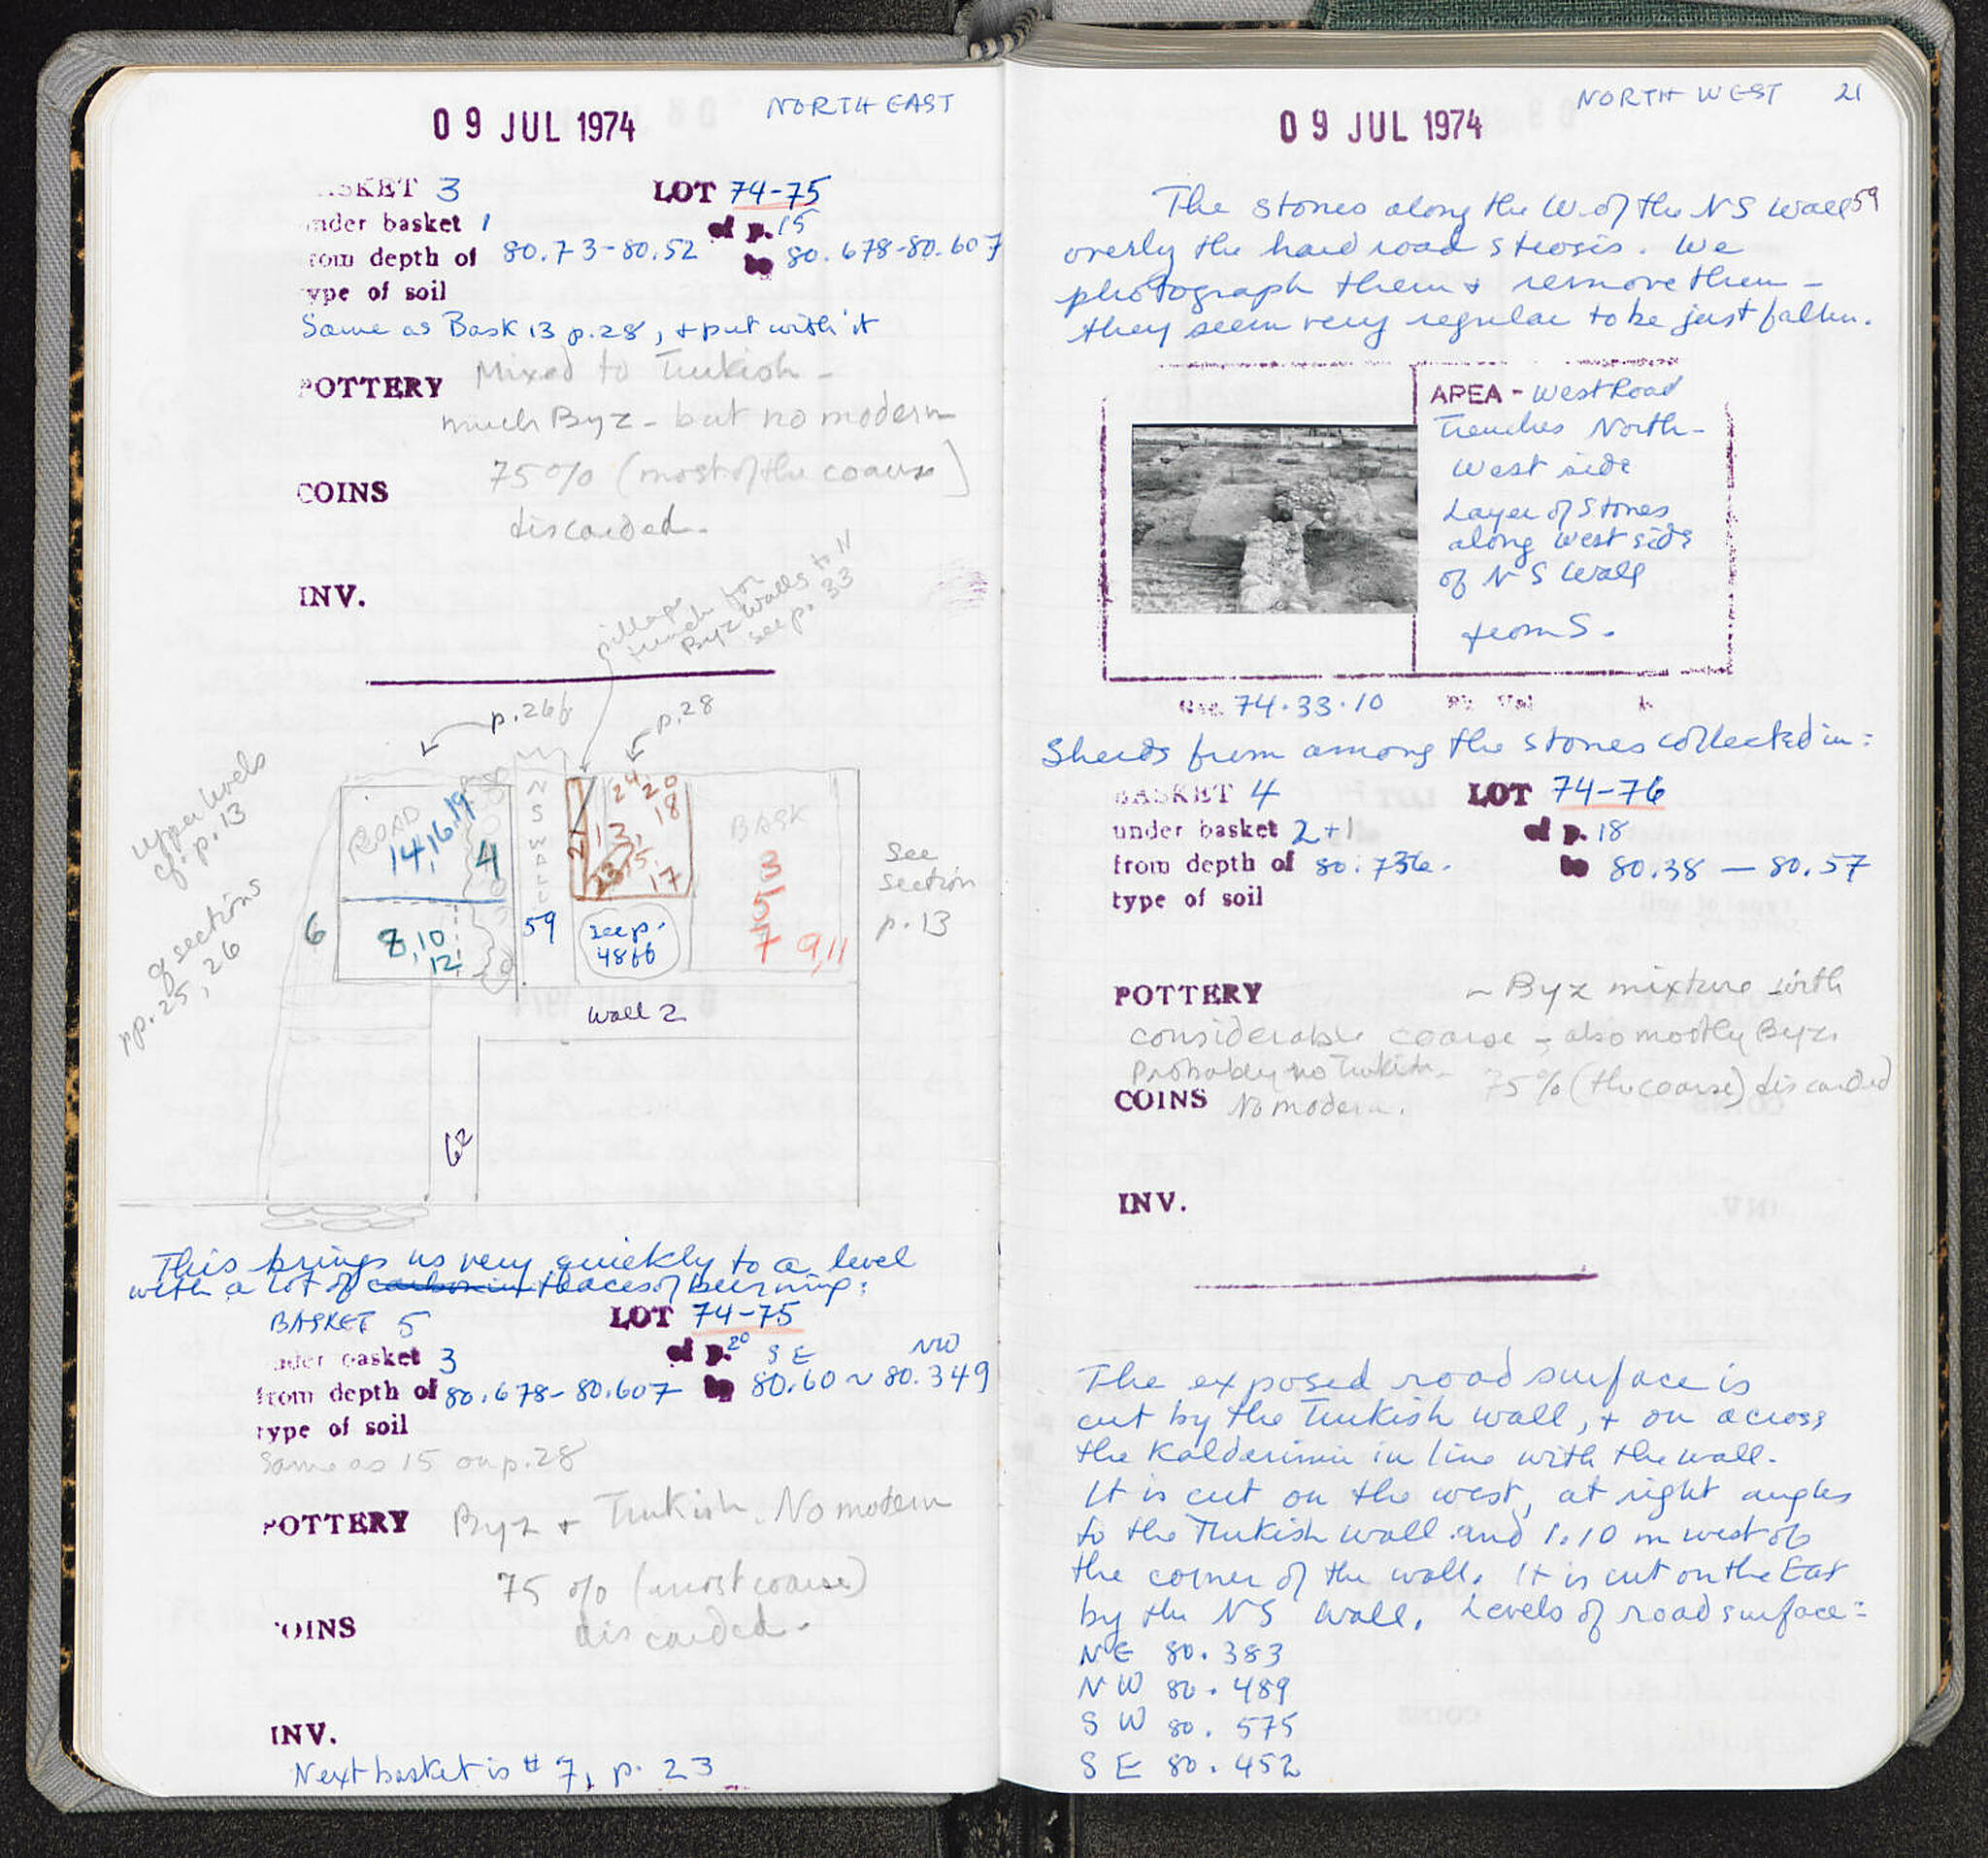 09 JUL 1974 NORTH EAST
ASKET 3 LOT 74-75
nder basket 1 of p. 15
rom depth of 80.73-80.52 to 80.678-80.607
ype of soil
Same as Bask 13 p.28, + put with it
POTTERY Mixed to Turkish -
much Byz - but no modern
COINS 75% (most of the coarse)
discarded.
INV.
pillage
trench for
Byz walls to
see p. 33
p.26f p.28
upper levels
cf. p.13
cf sections
pp.25, 26
ROAD
14, 16, 19
4
N
S
WALL
24, 20
18
13,
15,
23 17
BASK
3
5
7 9,11
See
section
p. 13
6
8, 10
12
59
see p.
48ff
Wall 2
62
This brings us very quickly to a level
with a lot of traces of burning:
BASKET 5 LOT 74-75
nder basket 3 of p. 20 SE NW
from depth of 80.678-80.607 to 80.60 ~ 80.349
type of soil
Same as 15 on p.28
POTTERY Byz + Turkish. No modern
75% (most coarse)
OINS discarded.
INV.
Next basket is # 7, p. 23
09 JUL 1974 NORTH WEST 21
The stones along the W. of the NS Wall 59
overly the hard road strosis. We
photograph them + remove them -
they seem very regular to be just fallen.
AREA - West Road
Trenches North-
West side
Layer of Stones
along West side
of N S Wall
from S.
Neg. 74.33.10
Sherds from among the stones collected in:
BASKET 4 LOT 74-76
under basket 2+1 of p. 18
from depth of 80.736. to 80.38 - 80.57
type of soil
POTTERY - Byz mixture with
considerable coarse - also mostly Byz.
Probably no Turkish. 75% (the coarse) discarded
COINS No modern.
INV.
The exposed road surface is
cut by the Turkish wall, + on across
the Kalderimi in line with the wall.
It is cut on the west, at right angles
to the Turkish wall and 1.10 m west of
the corner of the wall. It is cut on the East
by the NS Wall. Levels of road surface:
NE 80.383
NW 80.489
SW 80.575
SE 80.452